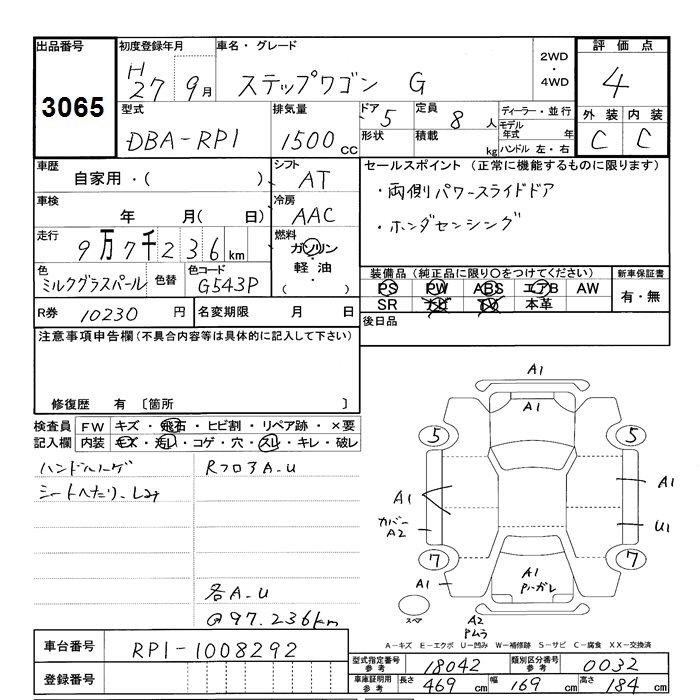 出品番号 初度登録年月 車名・グレード 2WD・4WD 評価点
3065 H27 9月 ステップワゴン G 4
型式 排気量 ドア 5 定員 8人 ディーラー・並行 外装 内装
DBA-RP1 1500cc 形状 積載 kg モデル年式 年 ハンドル 左・右 C C
車歴 自家用・( ) シフト AT セールスポイント (正常に機能するものに限ります)
・両側パワースライドドア
車検 年 月( 日) 冷房 AAC ・ホンダセンシング
走行 9万7千236km 燃料 ガソリン 軽油 ・( )
色 ミルクグラスパール 色替 色コード G543P
装備品(純正品に限り○をつけてください) 新車保証書
PS PW ABS エアB AW 有・無
SR ナビ TV 本革
R券 10230円 名変期限 月 日 後日品
注意事項申告欄(不具合内容等は具体的に記入して下さい)
修復歴 有 〔箇所 〕
検査員記入欄 FW キズ・飛石・ヒビ割・リペア跡・×要
内装 キズ・汚れ・コゲ・穴・スレ・キレ・破レ
ハンドルハゲ RフロアA-U
シートヘたり、しみ
各A-U
@97.236km
A1
A1
5 5
A1 A1
カバーA2 U1
7 7
A1 A1 Pハガレ
スペア A2 Pムラ
A-キズ E-エクボ U-凹み W-補修跡 S-サビ C-腐食 XX-交換済
車台番号 RP1-1008292
型式指定番号参考 18042 類別区分番号参考 0032
登録番号
車庫証明用参考 長さ 469cm 幅 169cm 高さ 184cm